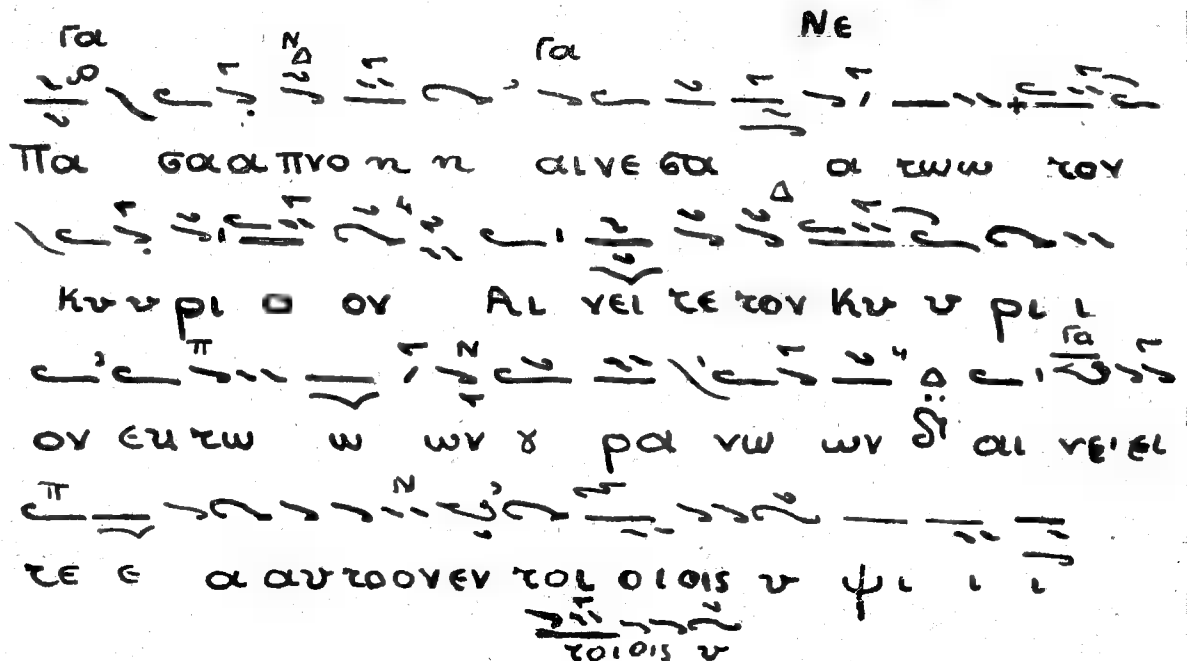 Γα Ν Δ Γα Νε
Πα σα α πνο η η αι νε σα α τω ω τον
Δ
Κυ υ ρι ο ον Αι νει τε τον Κυ υ ρι ι
π Ν Δ Γα
ον εκ τω ω ων ȣ ρα νω ων δι αι νει ει
π Ν
τε ε α αυ το ον εν τοι οι οις υ ψι ι ι
τοι οις υ